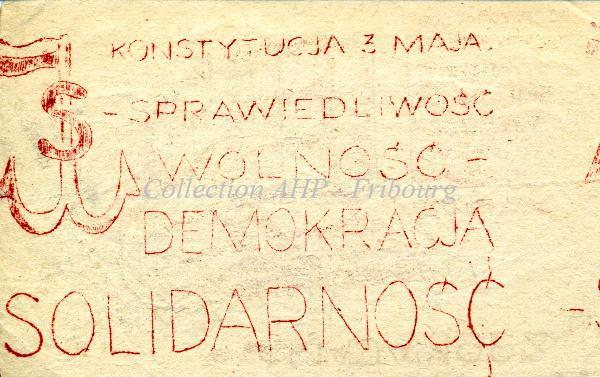 KONSTYTUCJA 3 MAJA.
S
- SPRAWIEDLIWOŚĆ
WOLNOŚĆ -
Collection AHP - Fribourg
DEMOKRACJA
SOLIDARNOŚĆ